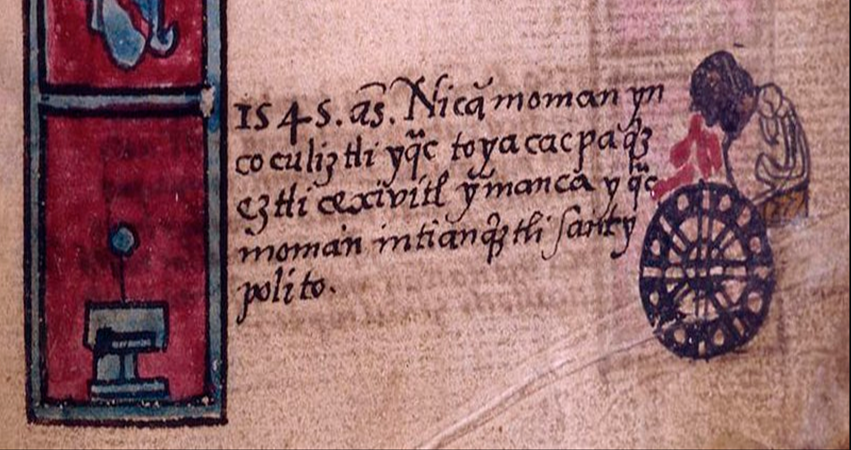 1545. as̄. Nicā moman yn
coculiztli yq̄c toyacacpa quiz
eztli cexivitl ỹmanca y q̄c
moman in tianquiztli santy
polito.